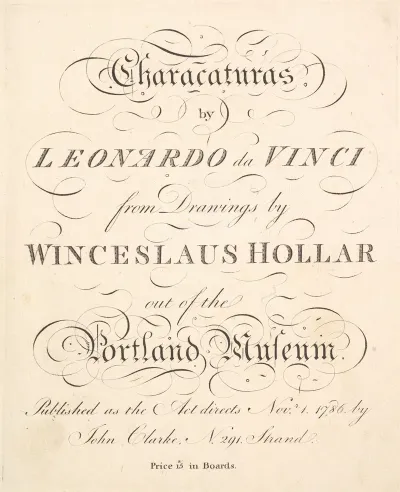 Characaturas
by
LEONARDO da VINCI
from Drawings by
WINCESLAUS HOLLAR
out of the
Portland Muſeum.
Published as the Act directs Nov.r 1. 1786. by
John Clarke. N.o 291. Strand.
Price in Boards.